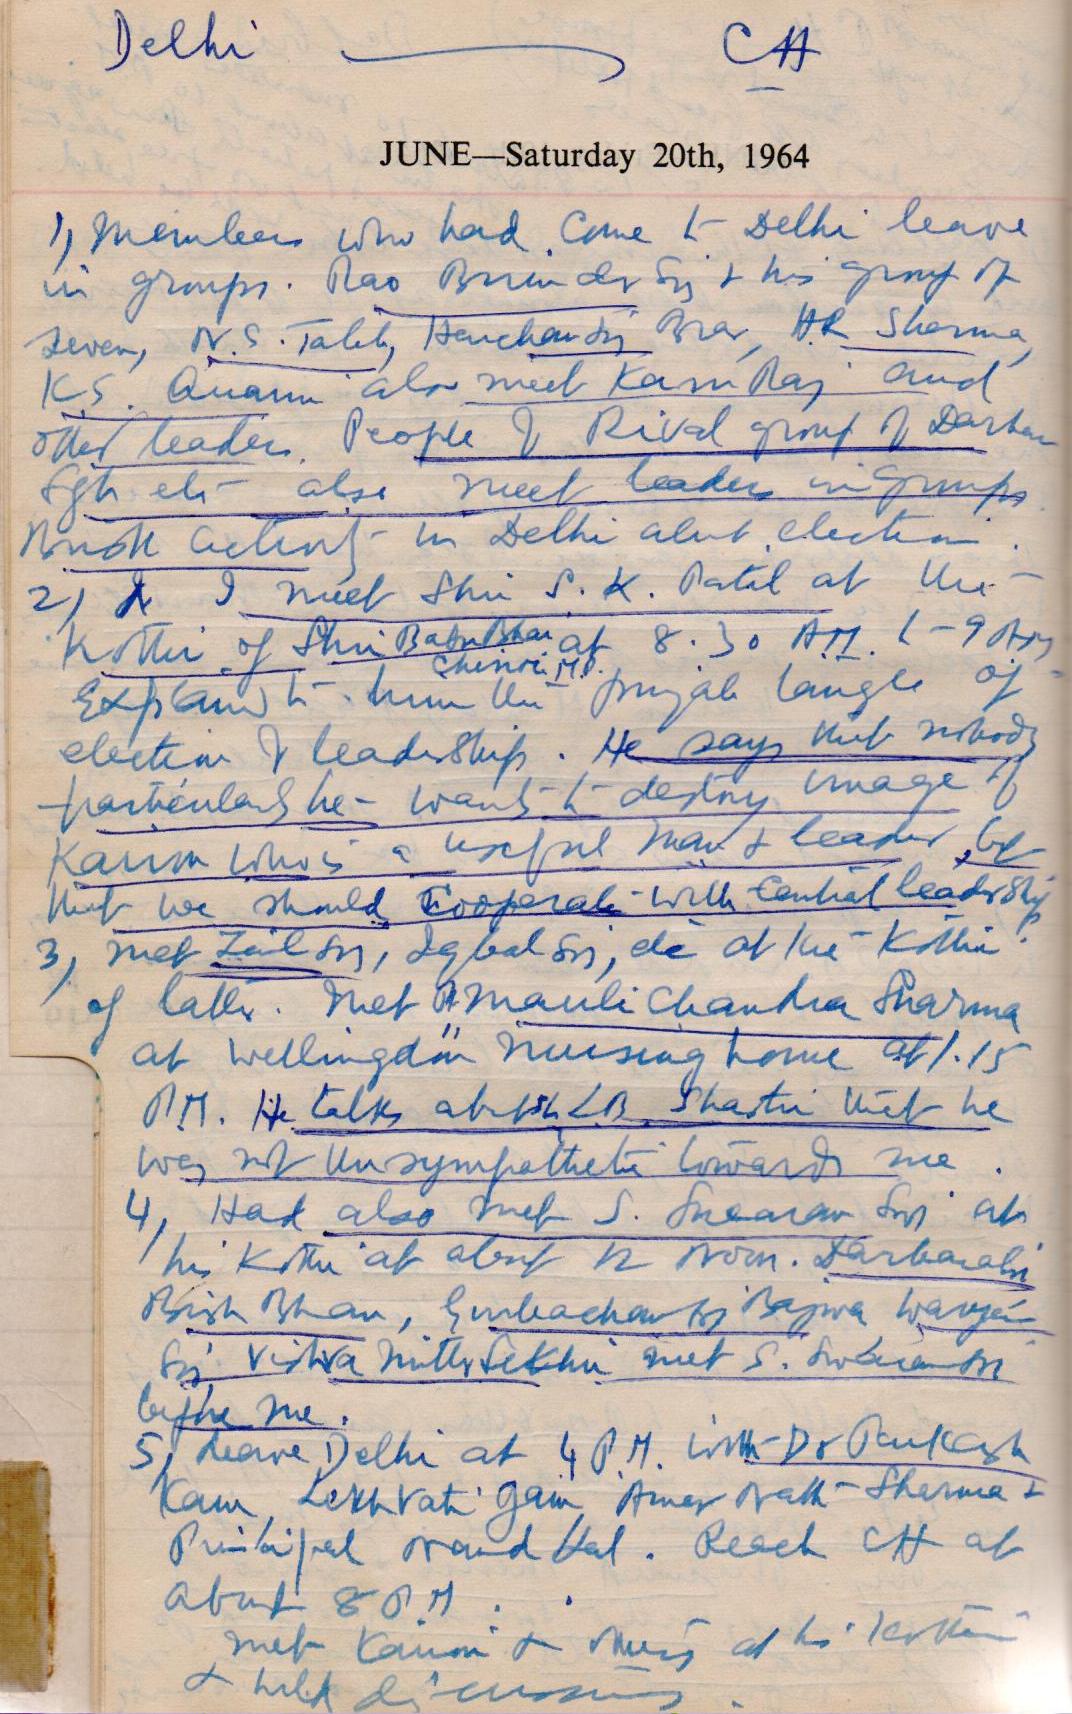 Delhi CH
JUNE—Saturday 20th, 1964
1, Members who had come to Delhi leave
in groups. Rao Birinder Sgj & his group of
seven, N.S. Talib, Harcharan Sgj Brar, H.R. Sharma,
K.S. also meet Kam Raj and
other leaders. People of Rival group of Darbara
Sgh etc also meet leaders in groups.
Brisk activity in Delhi about election.
2, I meet Shri S. K. Patil at the
Kothi of Shri Babu Bhai at 8.30 A.M. to 9 A.M.
Chinoi M.P.
Explained to him the Punjab tangle of
election of leadership. He says that nobody
particularly he wants to destroy image of
Kairon who is a useful man & leader, but
that we should Cooperate with Central leadership.
3, Met Zail Sgj, Iqbal Sgj, etc at the Kothi
of latter. Met Mauli Chandra Sharma
at Wellingdon Nursing home at 1.15
P.M. He talks about Sh L.B. Shastri that he
was not unsympathetic towards me.
4, Had also met S. Swaran Sgj at
his Kothi at about 12 Noon. Darbara Sgj
Brish Bhan, Gurbachan Sgj Bajwa
Sgj Vishva Mitter Sekhri met S. Swaran Sgj
before me.
5, Leave Delhi at 4 P.M. with Dr Parkash
Kaur, Lekhvati Jain, Amar Nath Sharma &
Principal Nand Lal. Reach CH at
about 8 P.M.
Met Kairon & others at his Kothi
& held discussions.